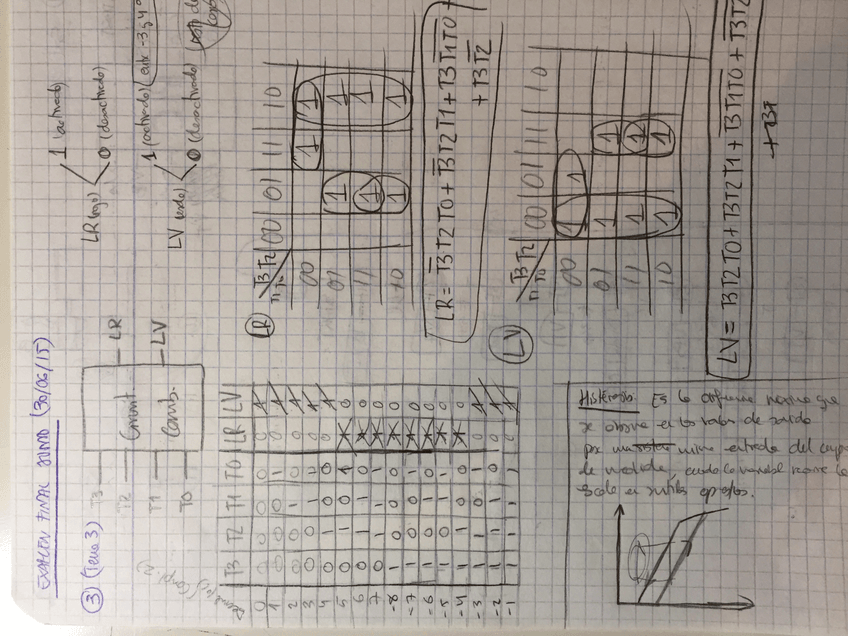 EXAMEN FINAL JUNIO (30/06/15)
③ (Tema 3)
T3
T2
T1
T0
Circuit.
Comb.
LR
LV
LR (rojo)
1 (activado)
0 (desactivado)
LV (verde)
1 (activado) (entre -3 y 4º
0 (desactivado)
(Compl. 2)
T3 T2 T1 T0 LR LV
0 0 0 0 0 0 1
1 0 0 0 1 0 1
2 0 0 1 0 0 1
3 0 0 1 1 0 1
4 0 1 0 0 0 1
5 0 1 0 1 1 0
6 0 1 1 0 1 0
7 0 1 1 1 1 0
-8 1 0 0 0 1 0
-7 1 0 0 1 1 0
-6 1 0 1 0 1 0
-5 1 0 1 1 1 0
-4 1 1 0 0 1 0
-3 1 1 0 1 0 1
-2 1 1 1 0 0 1
-1 1 1 1 1 0 1
LR
T3 T2
T1 T0
00 01 11 10
00 1 1
01 1 1
11 1 1
10 1 1
LR = T̅3T2T0 + T̅3T2T1 + T3T̅1T̅0 +
+ T3T̅2
LV
T3 T2
T1 T0
00 01 11 10
00 1 1
01 1 1
11 1 1
10 1 1
LV = T3T2T0 + T3T2T1 + T̅3T̅1T̅0 + T̅3T̅2
+ T̅3T
Histéresis. Es la diferencia máxima que
se observa en los valores de salida
para misma entrada del campo
de medida, cuando la variable recorre la
escala en sentidos opuestos.